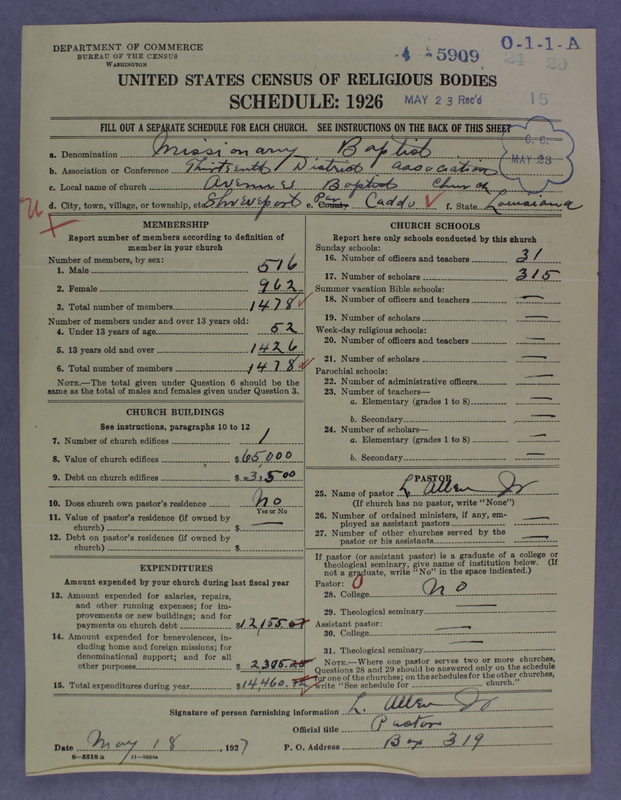 DEPARTMENT OF COMMERCE
BUREAU OF THE CENSUS
WASHINGTON
5909
O-1-1-A
24 20
UNITED STATES CENSUS OF RELIGIOUS BODIES
SCHEDULE: 1926
MAY 23 Rec'd
15
FILL OUT A SEPARATE SCHEDULE FOR EACH CHURCH. SEE INSTRUCTIONS ON THE BACK OF THIS SHEET
C. C.
MAY 23
a. Denomination Missionary Baptist
b. Association or Conference Thirteenth District association
c. Local name of church Avenues Baptist Church
d. City, town, village, or township, etc. Shreveport e. County Par Caddo f. State Louisiana
MEMBERSHIP
Report number of members according to definition of
member in your church
Number of members, by sex:
1. Male 516
2. Female 962
3. Total number of members 1478
Number of members under and over 13 years old:
4. Under 13 years of age 52
5. 13 years old and over 1426
6. Total number of members 1478
NOTE.—The total given under Question 6 should be
same as the total of males and females given under Question 3.
CHURCH BUILDINGS
See instructions, paragraphs 10 to 12
7. Number of church edifices 1
8. Value of church edifices $65000
9. Debt on church edifices $3,500
10. Does church own pastor's residence No
Yes or No
11. Value of pastor's residence (if owned by
church) $ —
12. Debt on pastor's residence (if owned by
church) $
EXPENDITURES
Amount expended by your church during last fiscal year
13. Amount expended for salaries, repairs,
and other running expenses; for im-
provements or new buildings; and for
payments on church debt $12,155
14. Amount expended for benevolences, in-
cluding home and foreign missions; for
denominational support; and for all
other purposes $2,305
15. Total expenditures during year $14,460
CHURCH SCHOOLS
Report here only schools conducted by this church
Sunday schools:
16. Number of officers and teachers 31
17. Number of scholars 315
Summer vacation Bible schools:
18. Number of officers and teachers —
19. Number of scholars —
Week-day religious schools:
20. Number of officers and teachers —
21. Number of scholars —
Parochial schools:
22. Number of administrative officers —
23. Number of teachers—
a. Elementary (grades 1 to 8) —
b. Secondary —
24. Number of scholars—
a. Elementary (grades 1 to 8) —
b. Secondary —
PASTOR
25. Name of pastor L Allen Jr
(If church has no pastor, write "None")
26. Number of ordained ministers, if any, em-
ployed as assistant pastors —
27. Number of other churches served by the
pastor or his assistants —
If pastor (or assistant pastor) is a graduate of a college or
theological seminary, give name of institution below. (If
not a graduate, write "No" in the space indicated.)
Pastor:
28. College No
29. Theological seminary —
Assistant pastor:
30. College —
31. Theological seminary —
NOTE.—Where one pastor serves two or more churches,
Questions 28 and 29 should be answered only on the schedule
for one of the churches; on the schedules for the other churches,
write "See schedule for church."
Signature of person furnishing information L. Allen Jr
Official title Pastor
Date May 18, 1927 P. O. Address Box 319